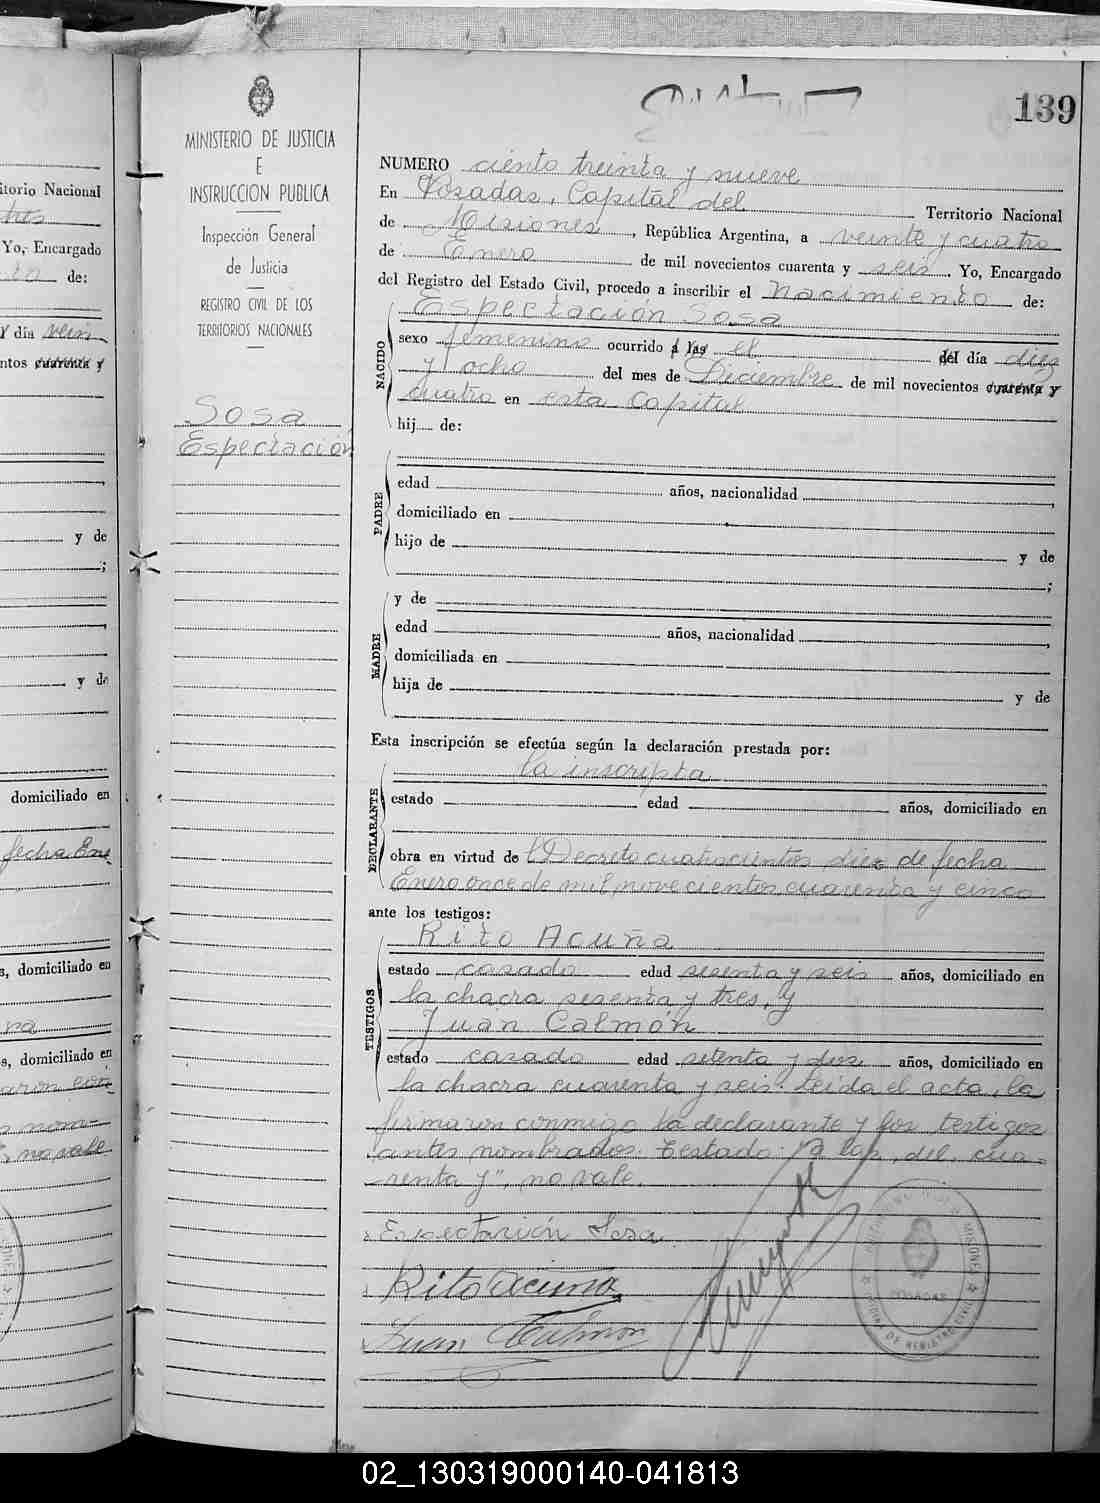 139
MINISTERIO DE JUSTICIA
E
INSTRUCCION PUBLICA
Inspección General
de Justicia
REGISTRO CIVIL DE LOS
TERRITORIOS NACIONALES
Sosa
Espectación
NUMERO ciento treinta y nueve
En Posadas, Capital del Territorio Nacional
de Misiones, República Argentina, a veinte y cuatro
de Enero de mil novecientos cuarenta y seis. Yo, Encargado
del Registro del Estado Civil, procedo a inscribir el nacimiento de:
NACIDO
Espectación Sosa
sexo femenino ocurrido a las el del día diez
y ocho del mes de Diciembre de mil novecientos cuarenta y
cuatro en esta Capital
hij de:
PADRE
edad años, nacionalidad
domiciliado en
hijo de y de
;
MADRE
y de
edad años, nacionalidad
domiciliada en
hija de y de
Esta inscripción se efectúa según la declaración prestada por:
DECLARANTE
la inscripta
estado edad años, domiciliado en
obra en virtud de l Decreto cuatrocientos diez de fecha
Enero once de mil novecientos cuarenta y cinco
ante los testigos:
TESTIGOS
Rito Acuña
estado casado edad sesenta y seis años, domiciliado en
la chacra sesenta y tres, y
Juan Calmón
estado casado edad setenta y dos años, domiciliado en
la chacra cuarenta y seis. Leida el acta, la
firmaron conmigo la declarante y los testigos
antes nombrados. Testado: "a las, del, cua-
renta y", no vale.
Espectación Sosa
Rito Acuña
Juan Calmon
POSADAS
itorio Nacional
tres
Yo, Encargado
de:
día vein
ntos cuarenta y
y de
;
y de
domiciliado en
fecha Ene
s, domiciliado en
s, domiciliado en
nom-
no vale
02_130319000140-041813